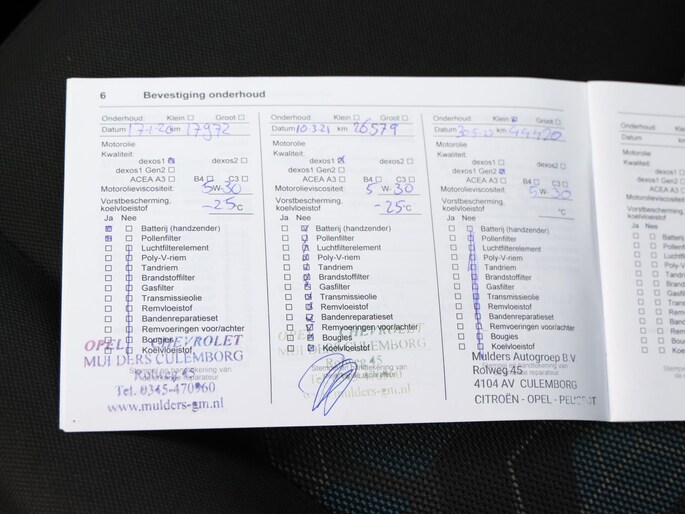 6 Bevestiging onderhoud
Onderhoud: Klein Groot
Datum 17-1-20 km 17972
Motorolie
Kwaliteit:
dexos1 dexos2
dexos1 Gen2
ACEA A3 B4 C3
Motorolieviscositeit: 5 W-30
Vorstbescherming, koelvloeistof -25°C
Ja Nee
Batterij (handzender)
Pollenfilter
Luchtfilterelement
Poly-V-riem
Tandriem
Brandstoffilter
Gasfilter
Transmissieolie
Remvloeistof
Bandenreparatieset
Remvoeringen voor/achter
Bougies
Koelvloeistof
OPEL CHEVROLET
MULDERS CULEMBORG
Rolweg 45
Tel. 0345-470960
www.mulders-gm.nl
Onderhoud: Klein Groot
Datum 10-3-21 km 26579
Motorolie
Kwaliteit:
dexos1 dexos2
dexos1 Gen2
ACEA A3 B4 C3
Motorolieviscositeit: 5 W-30
Vorstbescherming, koelvloeistof -25°C
Ja Nee
Batterij (handzender)
Pollenfilter
Luchtfilterelement
Poly-V-riem
Tandriem
Brandstoffilter
Gasfilter
Transmissieolie
Remvloeistof
Bandenreparatieset
Remvoeringen voor/achter
Bougies
Koelvloeistof
OPEL CHEVROLET
MULDERS CULEMBORG
Rolweg 45
www.mulders-gm.nl
Onderhoud: Klein Groot
Datum km 44420
Motorolie
Kwaliteit:
dexos1 dexos2
dexos1 Gen2
ACEA A3 B4 C3
Motorolieviscositeit: 5 W-30
Vorstbescherming, koelvloeistof °C
Ja Nee
Batterij (handzender)
Pollenfilter
Luchtfilterelement
Poly-V-riem
Tandriem
Brandstoffilter
Gasfilter
Transmissieolie
Remvloeistof
Bandenreparatieset
Remvoeringen voor/achter
Bougies
Koelvloeistof
Mulders Autogroep B.V
Rolweg 45
4104 AV CULEMBORG
CITROËN - OPEL - PEUGEOT
Onderhoud:
Datum
Motorolie
Kwaliteit:
ACEA A3
Motorolieviscositeit:
Vorstbescherming, koelvloeistof
Ja Nee